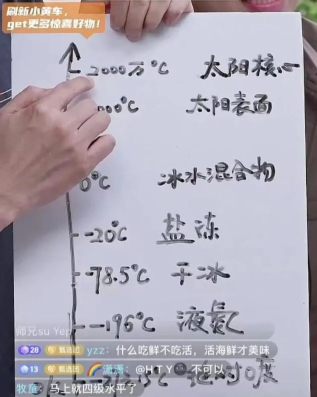 刷新小黄车,
get更多惊喜好物!
2000万℃ 太阳核心
00℃ 太阳表面
0℃ 冰水混合物
-20℃ 盐冻
-78.5℃ 干冰
-196℃ 液氮
师兄su Yep
28 甄选团 yzz: 什么吃鲜不吃活,活海鲜才美味
13 甄选团 潇潇: @H T Y 不可以
牧鱼: 马上就四级水平了
绝对0度